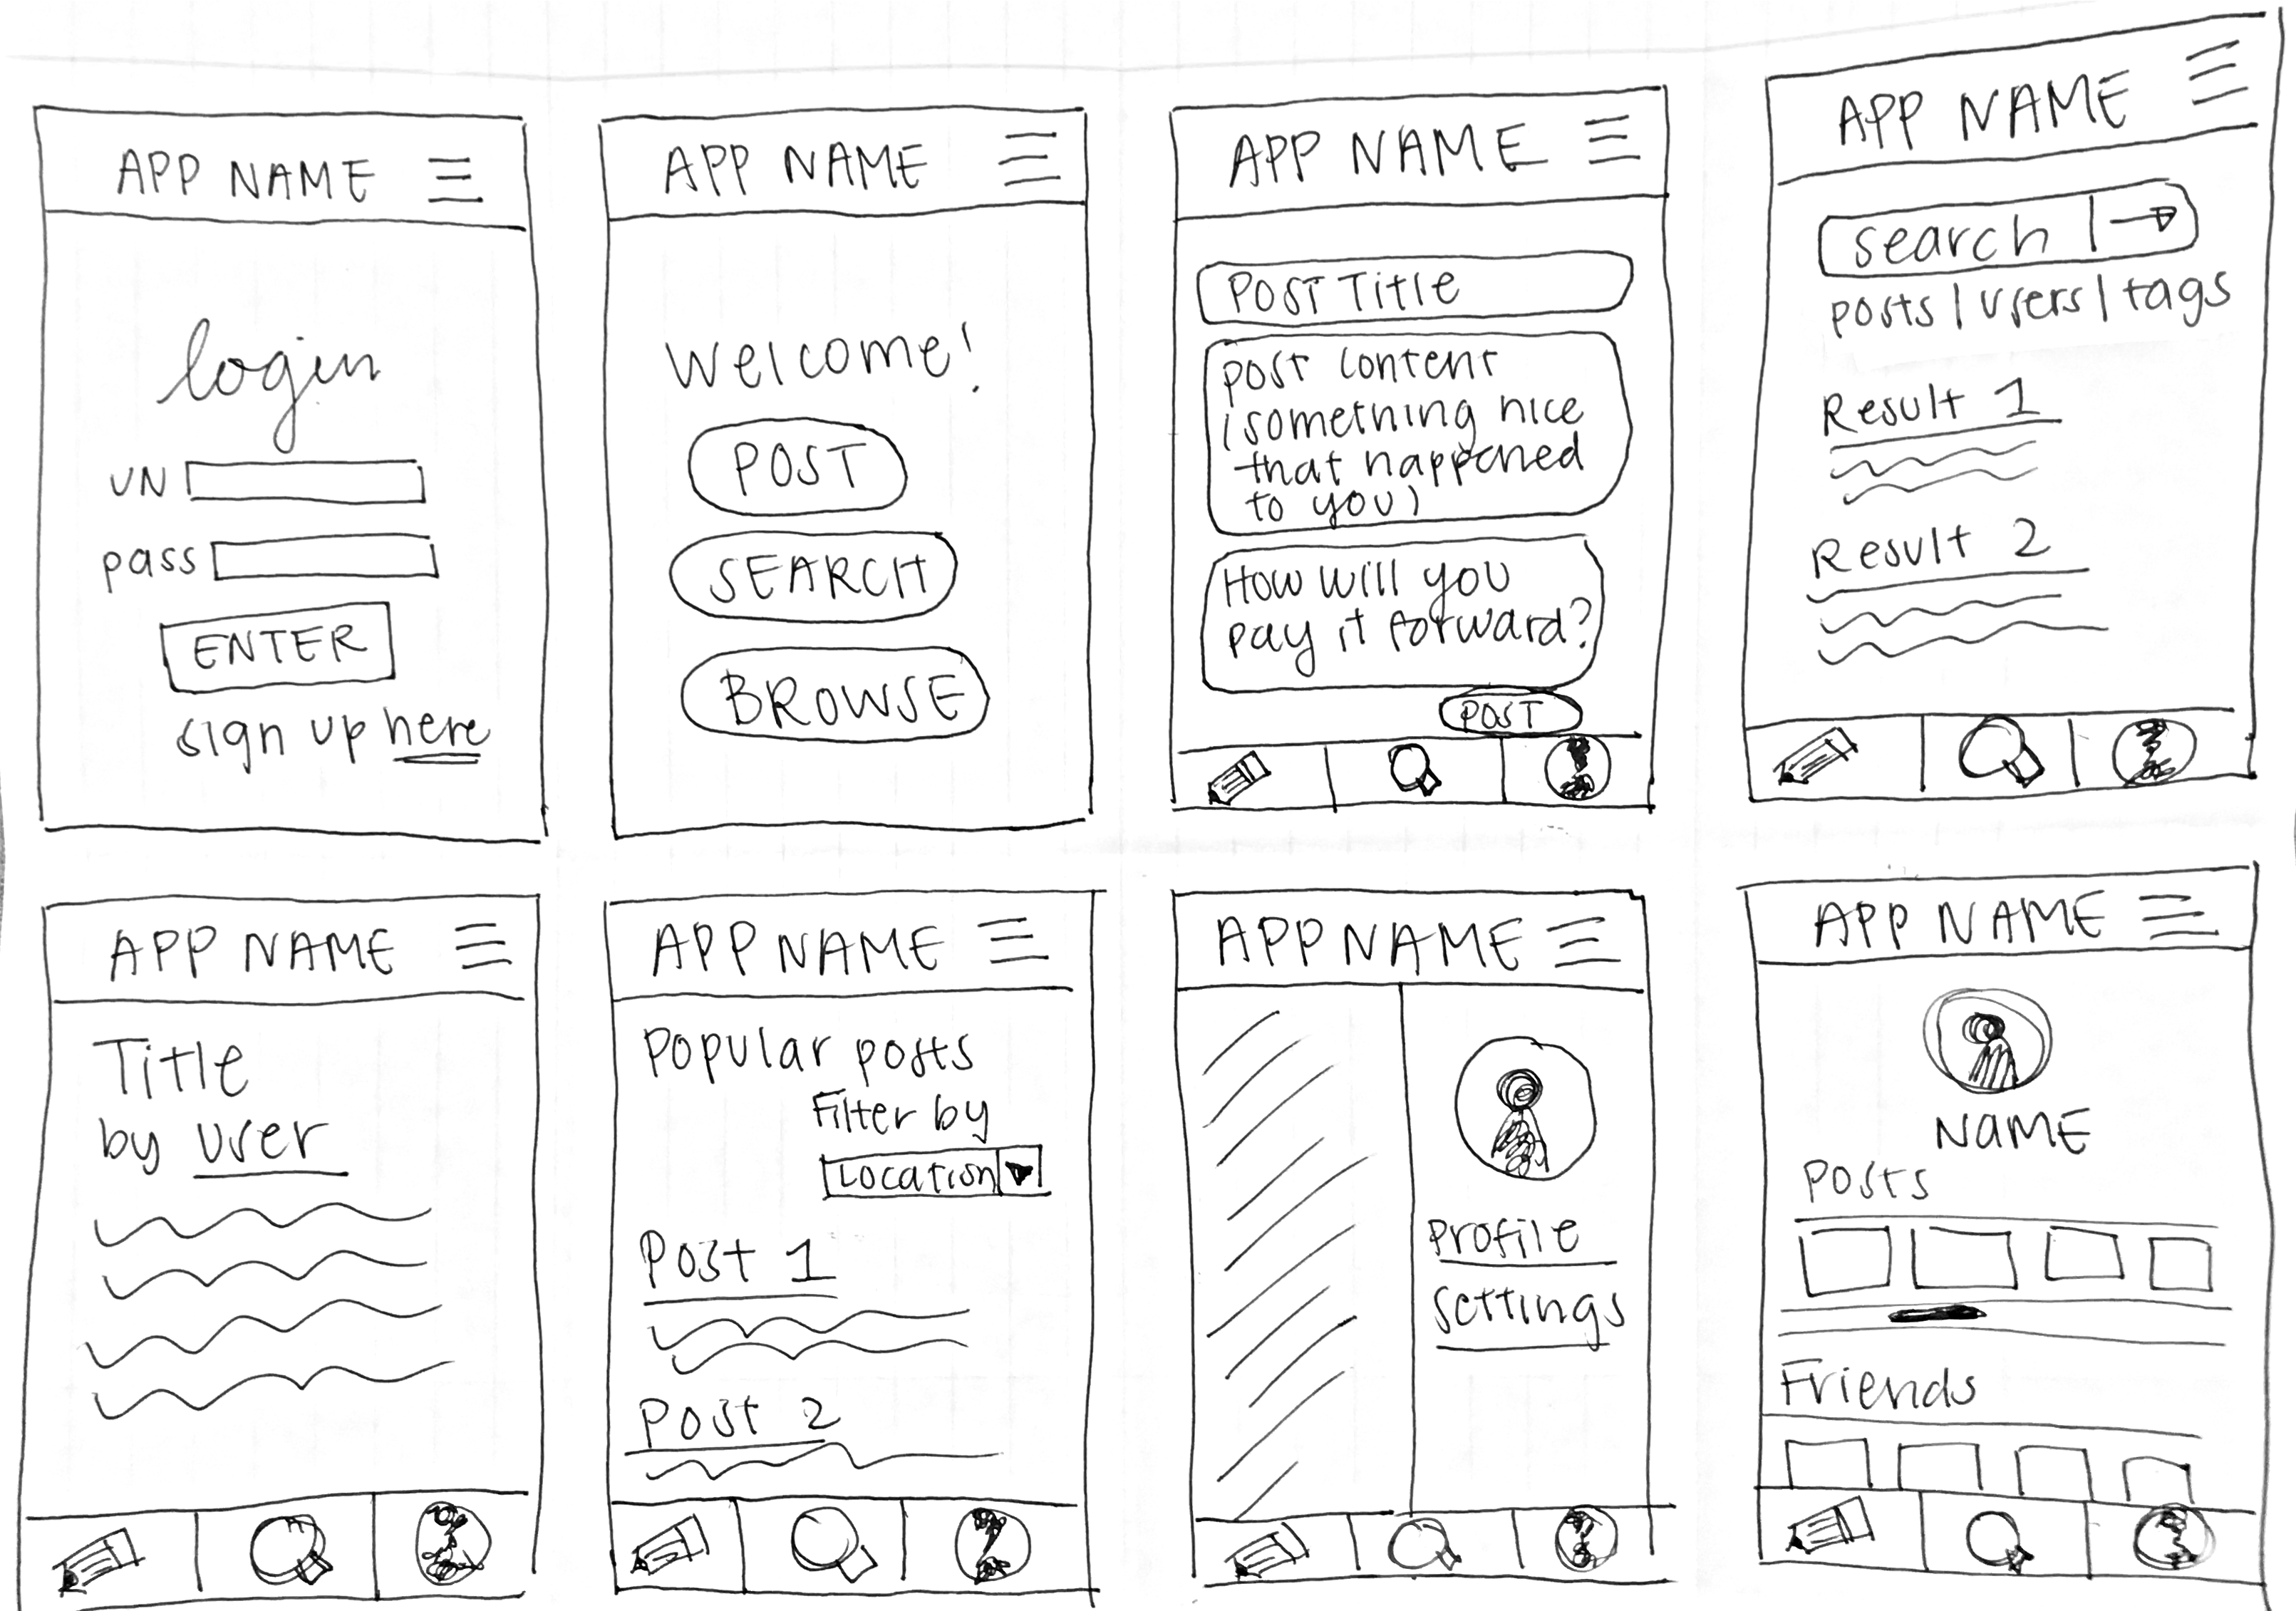 APP NAME
login
UN
pass
ENTER
sign up here
APP NAME
Welcome!
POST
SEARCH
BROWSE
APP NAME
POST Title
post content
(something nice
that happened
to you)
How will you
pay it forward?
POST
APP NAME
search
posts | users | tags
Result 1
Result 2
APP NAME
Title
by user
APP NAME
Popular posts
Filter by
Location
Post 1
Post 2
APP NAME
Profile
settings
APP NAME
NAME
Posts
Friends